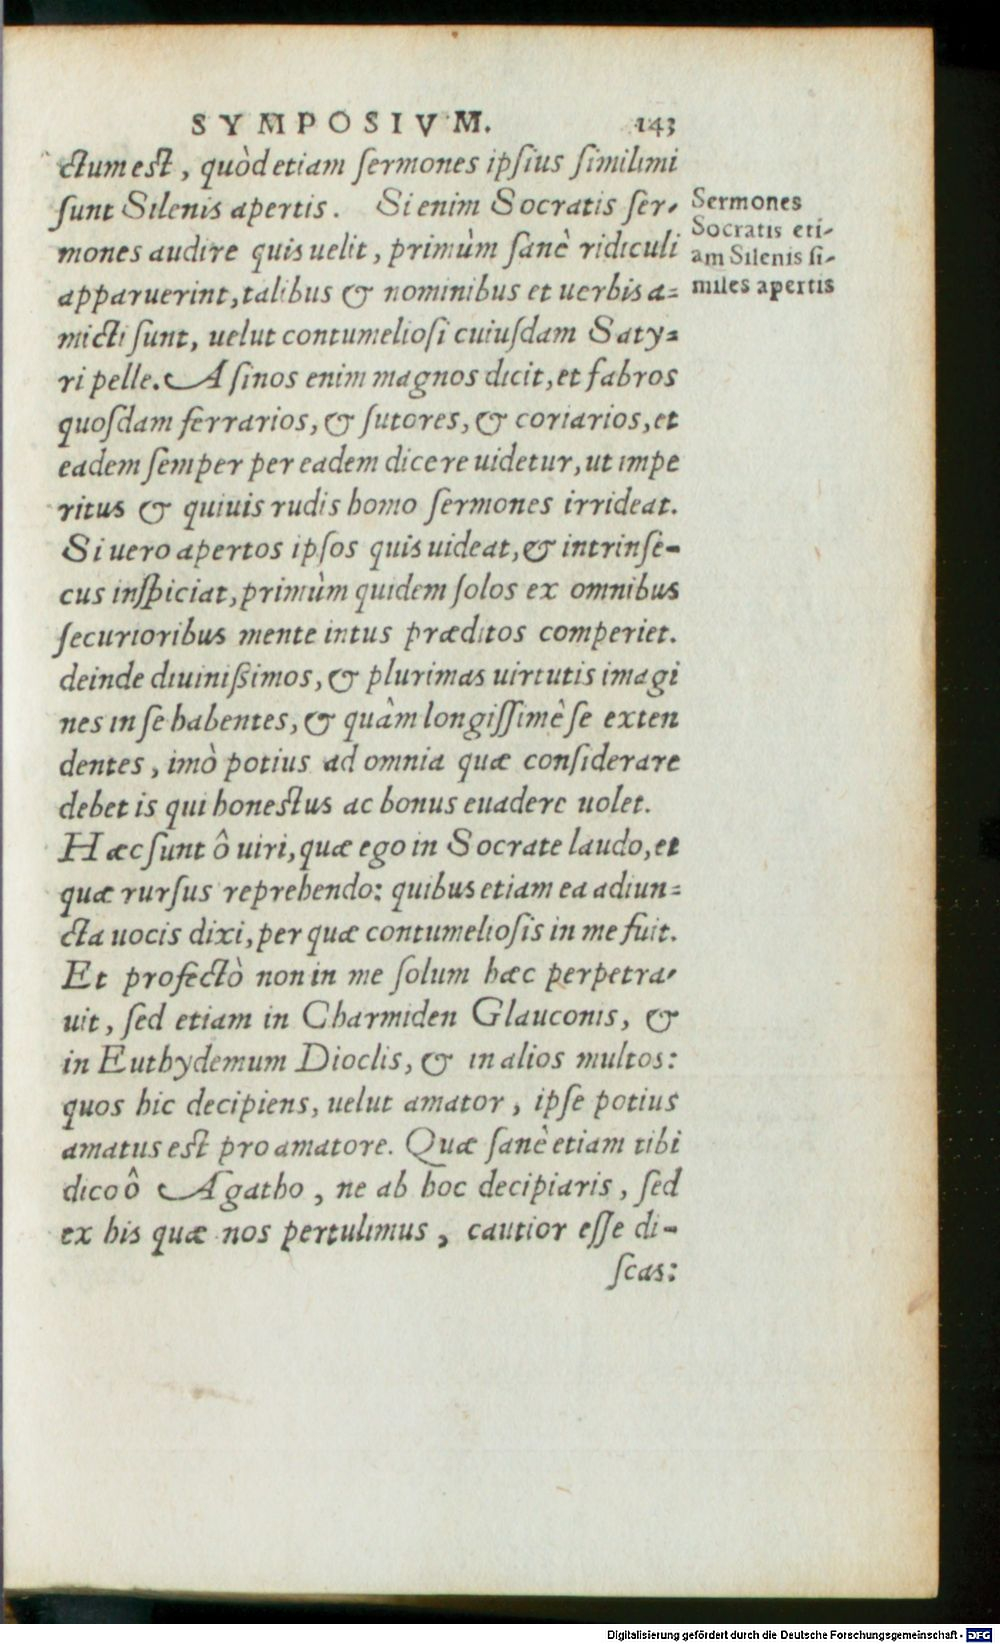 SYMPOSIVM. 143
ctum est, quòd etiam sermones ipsius similimi
sunt Silenis apertis. Si enim Socratis ser-
mones audire quis uelit, primùm sanè ridiculi
apparuerint, talibus & nominibus et uerbis a=
micti sunt, uelut contumeliosi cuiusdam Saty=
ri pelle. Asinos enim magnos dicit, et fabros
quosdam ferrarios, & sutores, & coriarios, et
eadem semper per eadem dicere uidetur, ut impe
ritus & quiuis rudis homo sermones irrideat.
Si uero apertos ipsos quis uideat, & intrinse-
cus inspiciat, primùm quidem solos ex omnibus
securioribus mente intus præditos comperiet.
deinde diuinißimos, & plurimas uirtutis imagi
nes in se habentes, & quàm longissimè se exten
dentes, imò potius ad omnia quæ considerare
debet is qui honestus ac bonus euadere uolet.
Hæc sunt ô uiri, quæ ego in Socrate laudo, et
quæ rursus reprehendo: quibus etiam ea adiun=
cta uocis dixi, per quæ contumeliosis in me fuit.
Et profectò non in me solum hæc perpetra-
uit, sed etiam in Charmiden Glauconis, &
in Euthydemum Dioclis, & in alios multos:
quos hic decipiens, uelut amator, ipse potius
amatus est pro amatore. Quæ sanè etiam tibi
dico ô Agatho, ne ab hoc decipiaris, sed
ex his quæ nos pertulimus, cautior esse di-
scas:
Sermones
Socratis eti-
am Silenis si-
miles apertis
Digitalisierung gefördert durch die Deutsche Forschungsgemeinschaft - DFG